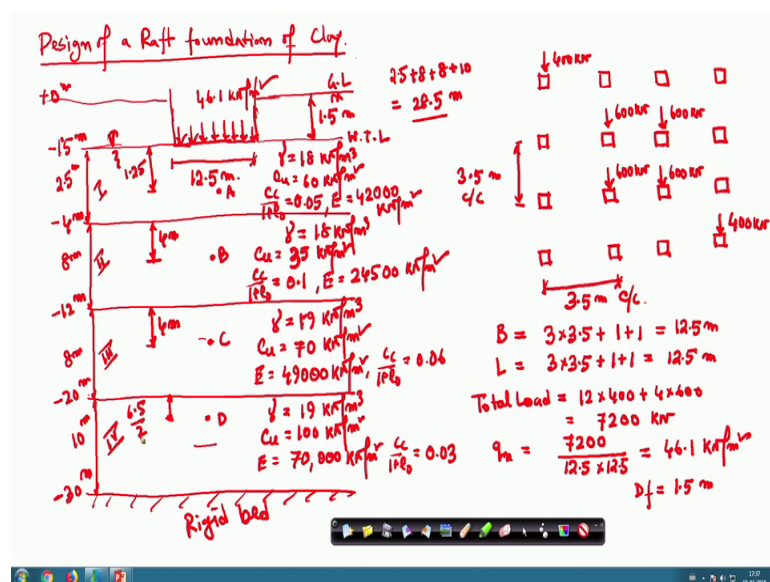 Design of a Raft foundation of Clay.
±0 m
46.1 kN/m²
G.L
1.5 m
2.5+8+8+10
= 28.5 m
-1.5 m
W.T.L
2.5 m
I
1.25
12.5 m.
A
γ = 18 kN/m3
Cu = 60 kN/m²
Cc/1+e0 = 0.05, E = 42000 kN/m²
-4 m
8m
II
4m
B
γ = 18 kN/m3
Cu = 35 kN/m²
Cc/1+e0 = 0.1, E = 24500 kN/m²
-12 m
8m
III
4m
C
γ = 19 kN/m3
Cu = 70 kN/m²
E = 49000 kN/m², Cc/1+e0 = 0.06
-20 m
10 m
IV
6.5/2
D
γ = 19 kN/m3
Cu = 100 kN/m²
E = 70,000 kN/m² Cc/1+e0 = 0.03
-30 m
Rigid bed
400kN
600kN 600kN
3.5 m
c/c
600kN 600kN
400kN
3.5 m c/c.
B = 3×3.5 + 1+1 = 12.5 m
L = 3×3.5 + 1+1 = 12.5 m
Total Load = 12×400 + 4×600
= 7200 kN
qn = 7200/12.5×12.5 = 46.1 kN/m²
Df = 1.5 m
17:37